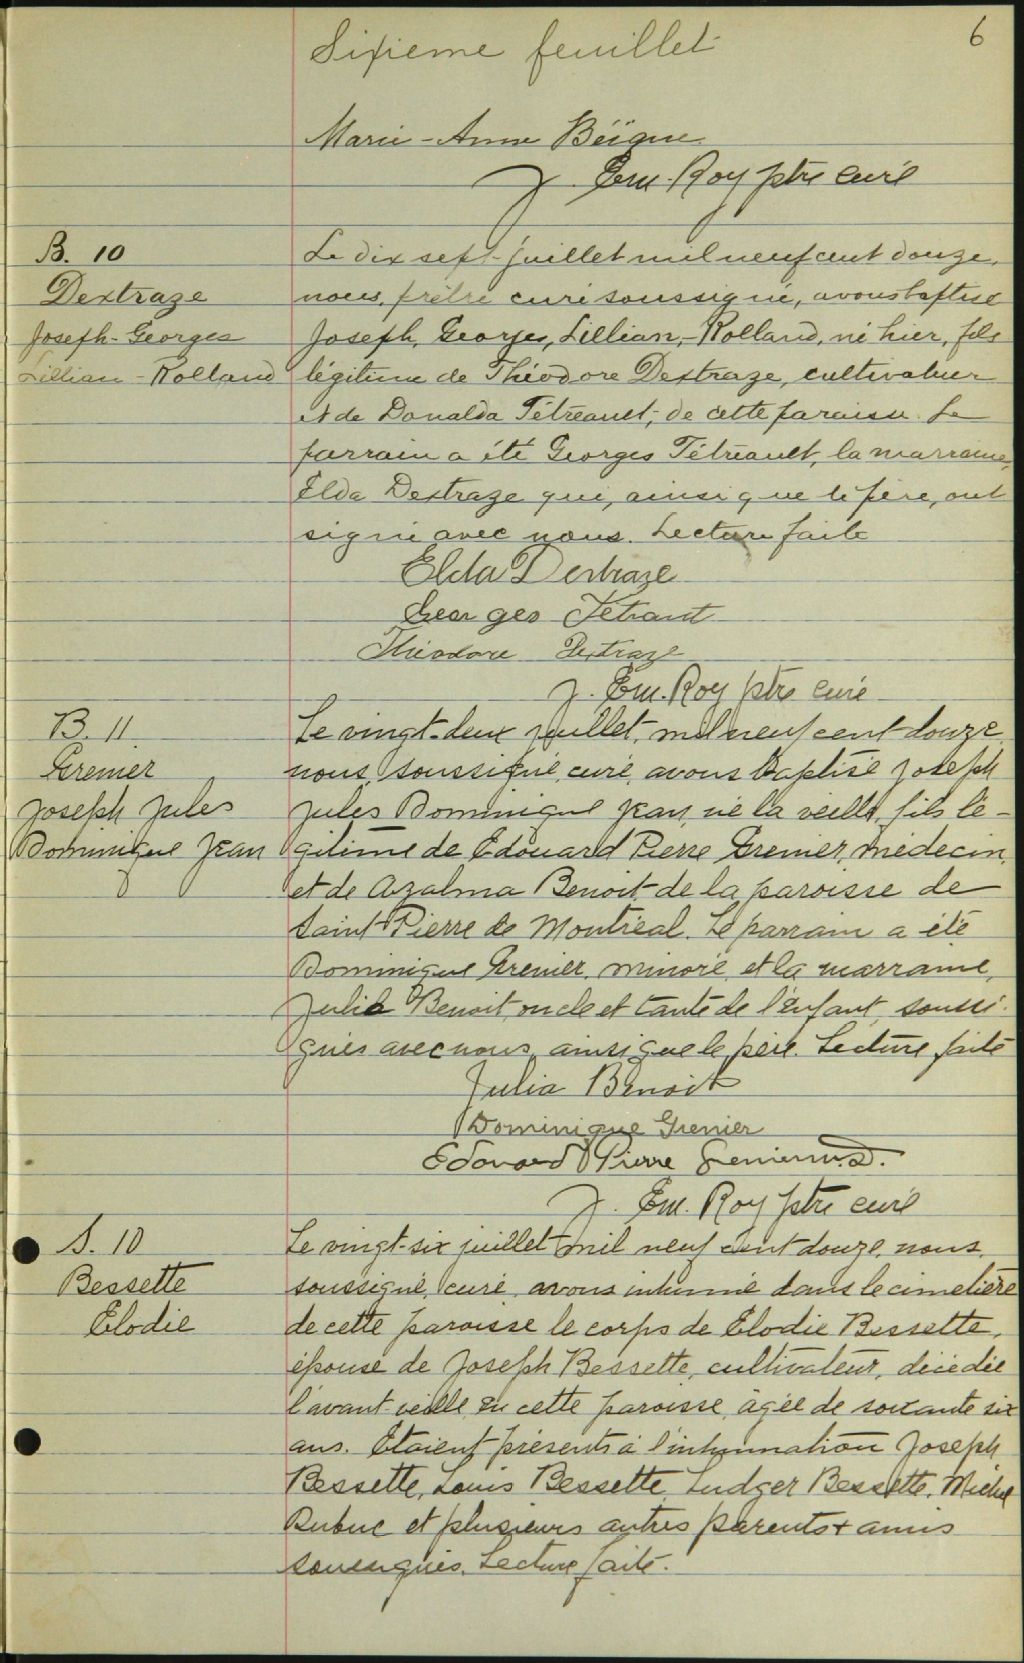 Sixieme feuillet
6
Marie-Anne Béïque
J. Em. Roy ptre curé
B. 10
Dextraze
Joseph-Georges
Lillian-Rolland
Le dix sept juillet mil neuf cent douze,
nous, prêtre curé soussigné, avons baptisé
Joseph, Georges, Lillian,-Rolland, né hier, fils
légitime de Théodore Dextraze, cultivateur
et de Donalda Tétreault, de cette paroisse. Le
parrain a été Georges Tétreault, la marraine,
Elda Dextraze qui, ainsi que le père, ont
signé avec nous. Lecture faite
Elda Dextraze
Georges Tétraut
Théodore Dextraze
J. Em. Roy ptre curé
B. 11
Grenier
Joseph Jules
Dominique Jean
Le vingt-deux juillet, mil neuf cent douze
nous, soussigné, curé, avons baptisé Joseph
Jules Dominique Jean, né la veille, fils lé-
gitime de Edouard Pierre Grenier, médecin,
et de Azalma Benoit de la paroisse de
Saint Pierre de Montréal. Le parrain a été
Dominique Grenier, minoré, et la marraine,
Julia Benoit, oncle et tante de l'enfant, soussi-
gnés avec nous, ainsi que le père. Lecture faite
Julia Benoit
Dominique Grenier
Edouard Pierre Grenier M.D.
J. Em. Roy ptre curé
S. 10
Bessette
Elodie
Le vingt-six juillet mil neuf cent douze, nous,
soussigné, curé, avons inhumé dans le cimetière
de cette paroisse le corps de Elodie Bessette,
épouse de Joseph Bessette, cultivateur, décédée
l'avant-veille en cette paroisse, âgée de soixante six
ans. Etaient présents à l'inhumation Joseph
Bessette, Louis Bessette, Ludger Bessette, Michel
Dubuc et plusieurs autres parents + amis
soussignés. Lecture faite.